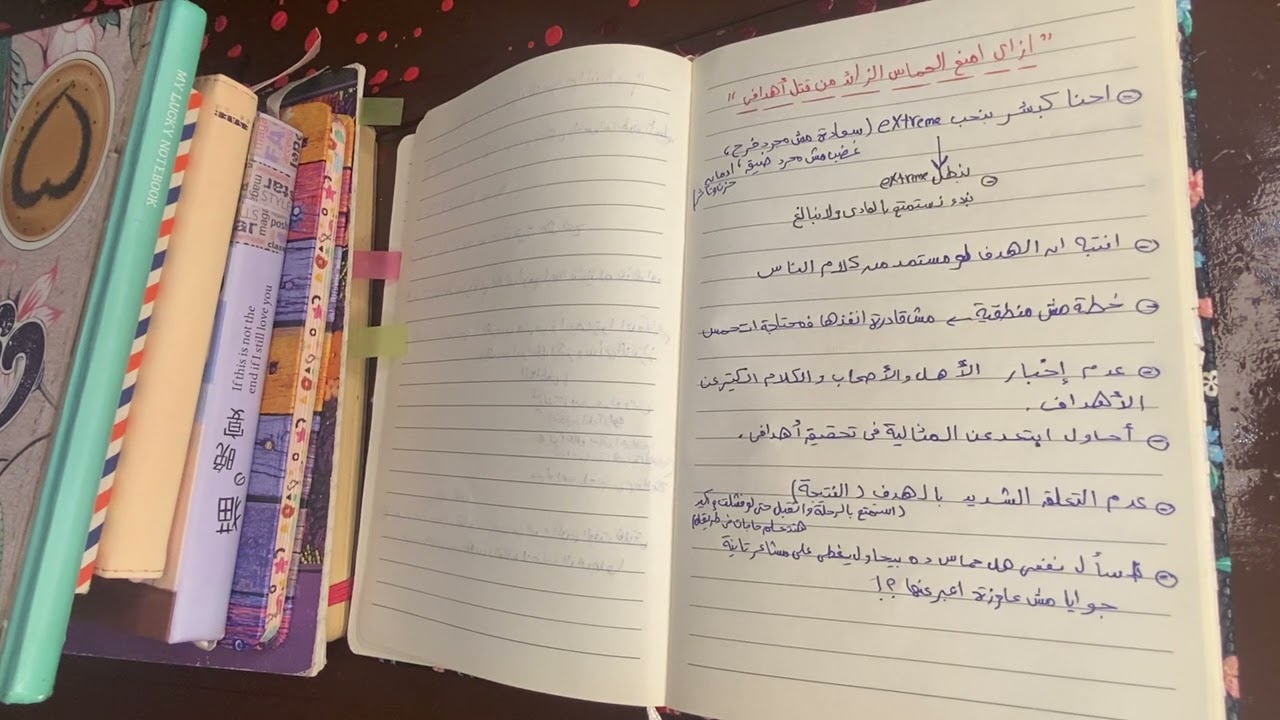 MY LUCKY NOTEBOOK
If this is not the
end if I still love you
"ازاى امنع الحماس الزائد من قتل أهدافى"
احنا كبشر بنحب extreme (سعادة مش مجرد فرح،
غضب مش مجرد ضيق،
نبطل extreme
نبدء نستمتع بالهادى ولا نبالغ
انتبه ان الهدف لو مستمد من كلام الناس
خطة مش منطقية ← مش قادرة انفذها فمحتاجة اتحمس
عدم إخبار الأهل والأصحاب والكلام الكتير عن
الأهداف.
أحاول ابتعد عن المثالية فى تحقيق أهدافى.
عدم التعلق الشديد بالهدف (النتيجة)
(استمتع بالرحلة واتقبل حتى لو فشلت
هتعلم حاجات فى طريقك
اسأل نفسى هل حماس ده بيحاول يغطى على مشاعر تانية
جوايا مش عاوزة اعبر عنها ؟!